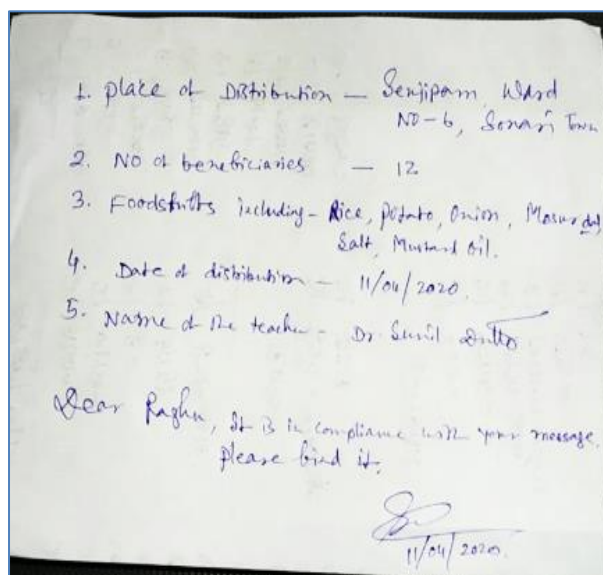 1. Place of Distribution — Senjipam, Ward
NO-6, Sonari Town
2. NO of beneficiaries — 12
3. Foodstuffs including - Rice, potato, Onion, Masur dal,
Salt, Mustard Oil.
4. Date of distribution — 11/04/2020.
5. Name of the teacher - Dr. Sunil Dutta
Dear Raghu, It is in compliance with your message.
Please find it.
11/04/2020.